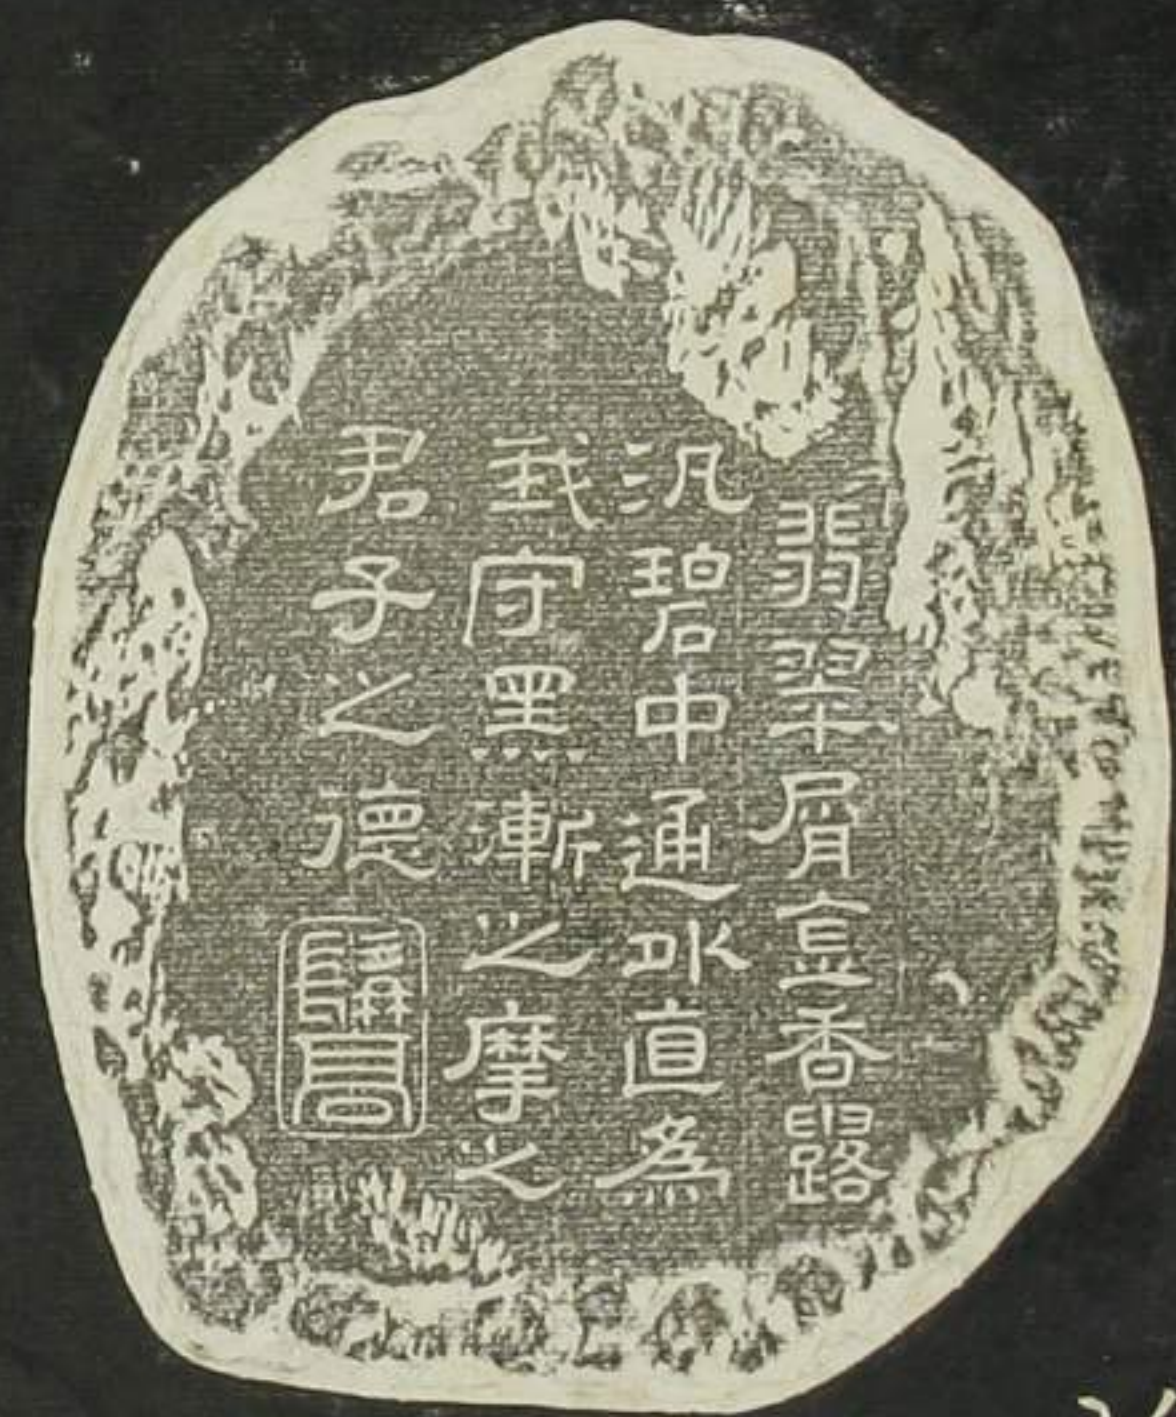 翡翠屑香
汎碧中通外直為
我守黑漸之摩之
君子之德